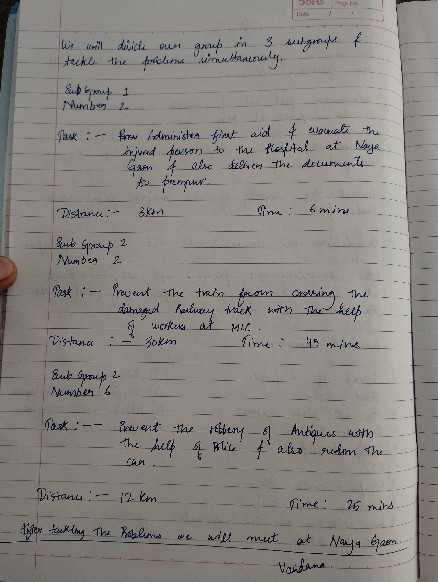 Page No.
Date / /
We will divide our group in 3 subgroups &
tackle the problems simultaneously.
Sub Group 1
Number 2
Task :- Administer first aid & evacuate the
injured person to the Hospital at Naya
Gaon & also deliver the documents
to prempur
Distance :- 3km Time : 6 mins
Sub Group 2
Number 2
Task :- Prevent the train from crossing the
damaged Railway track with the help
of workers at MLC.
Distance :- 30km Time : 45 mins
Sub Group 2
Number 6
Task :- Prevent the robbery of Antiques with
the help of Police & also return the
car.
Distance :- 12 km Time : 25 mins
After tackling the Problems we will meet at Naya Gaon